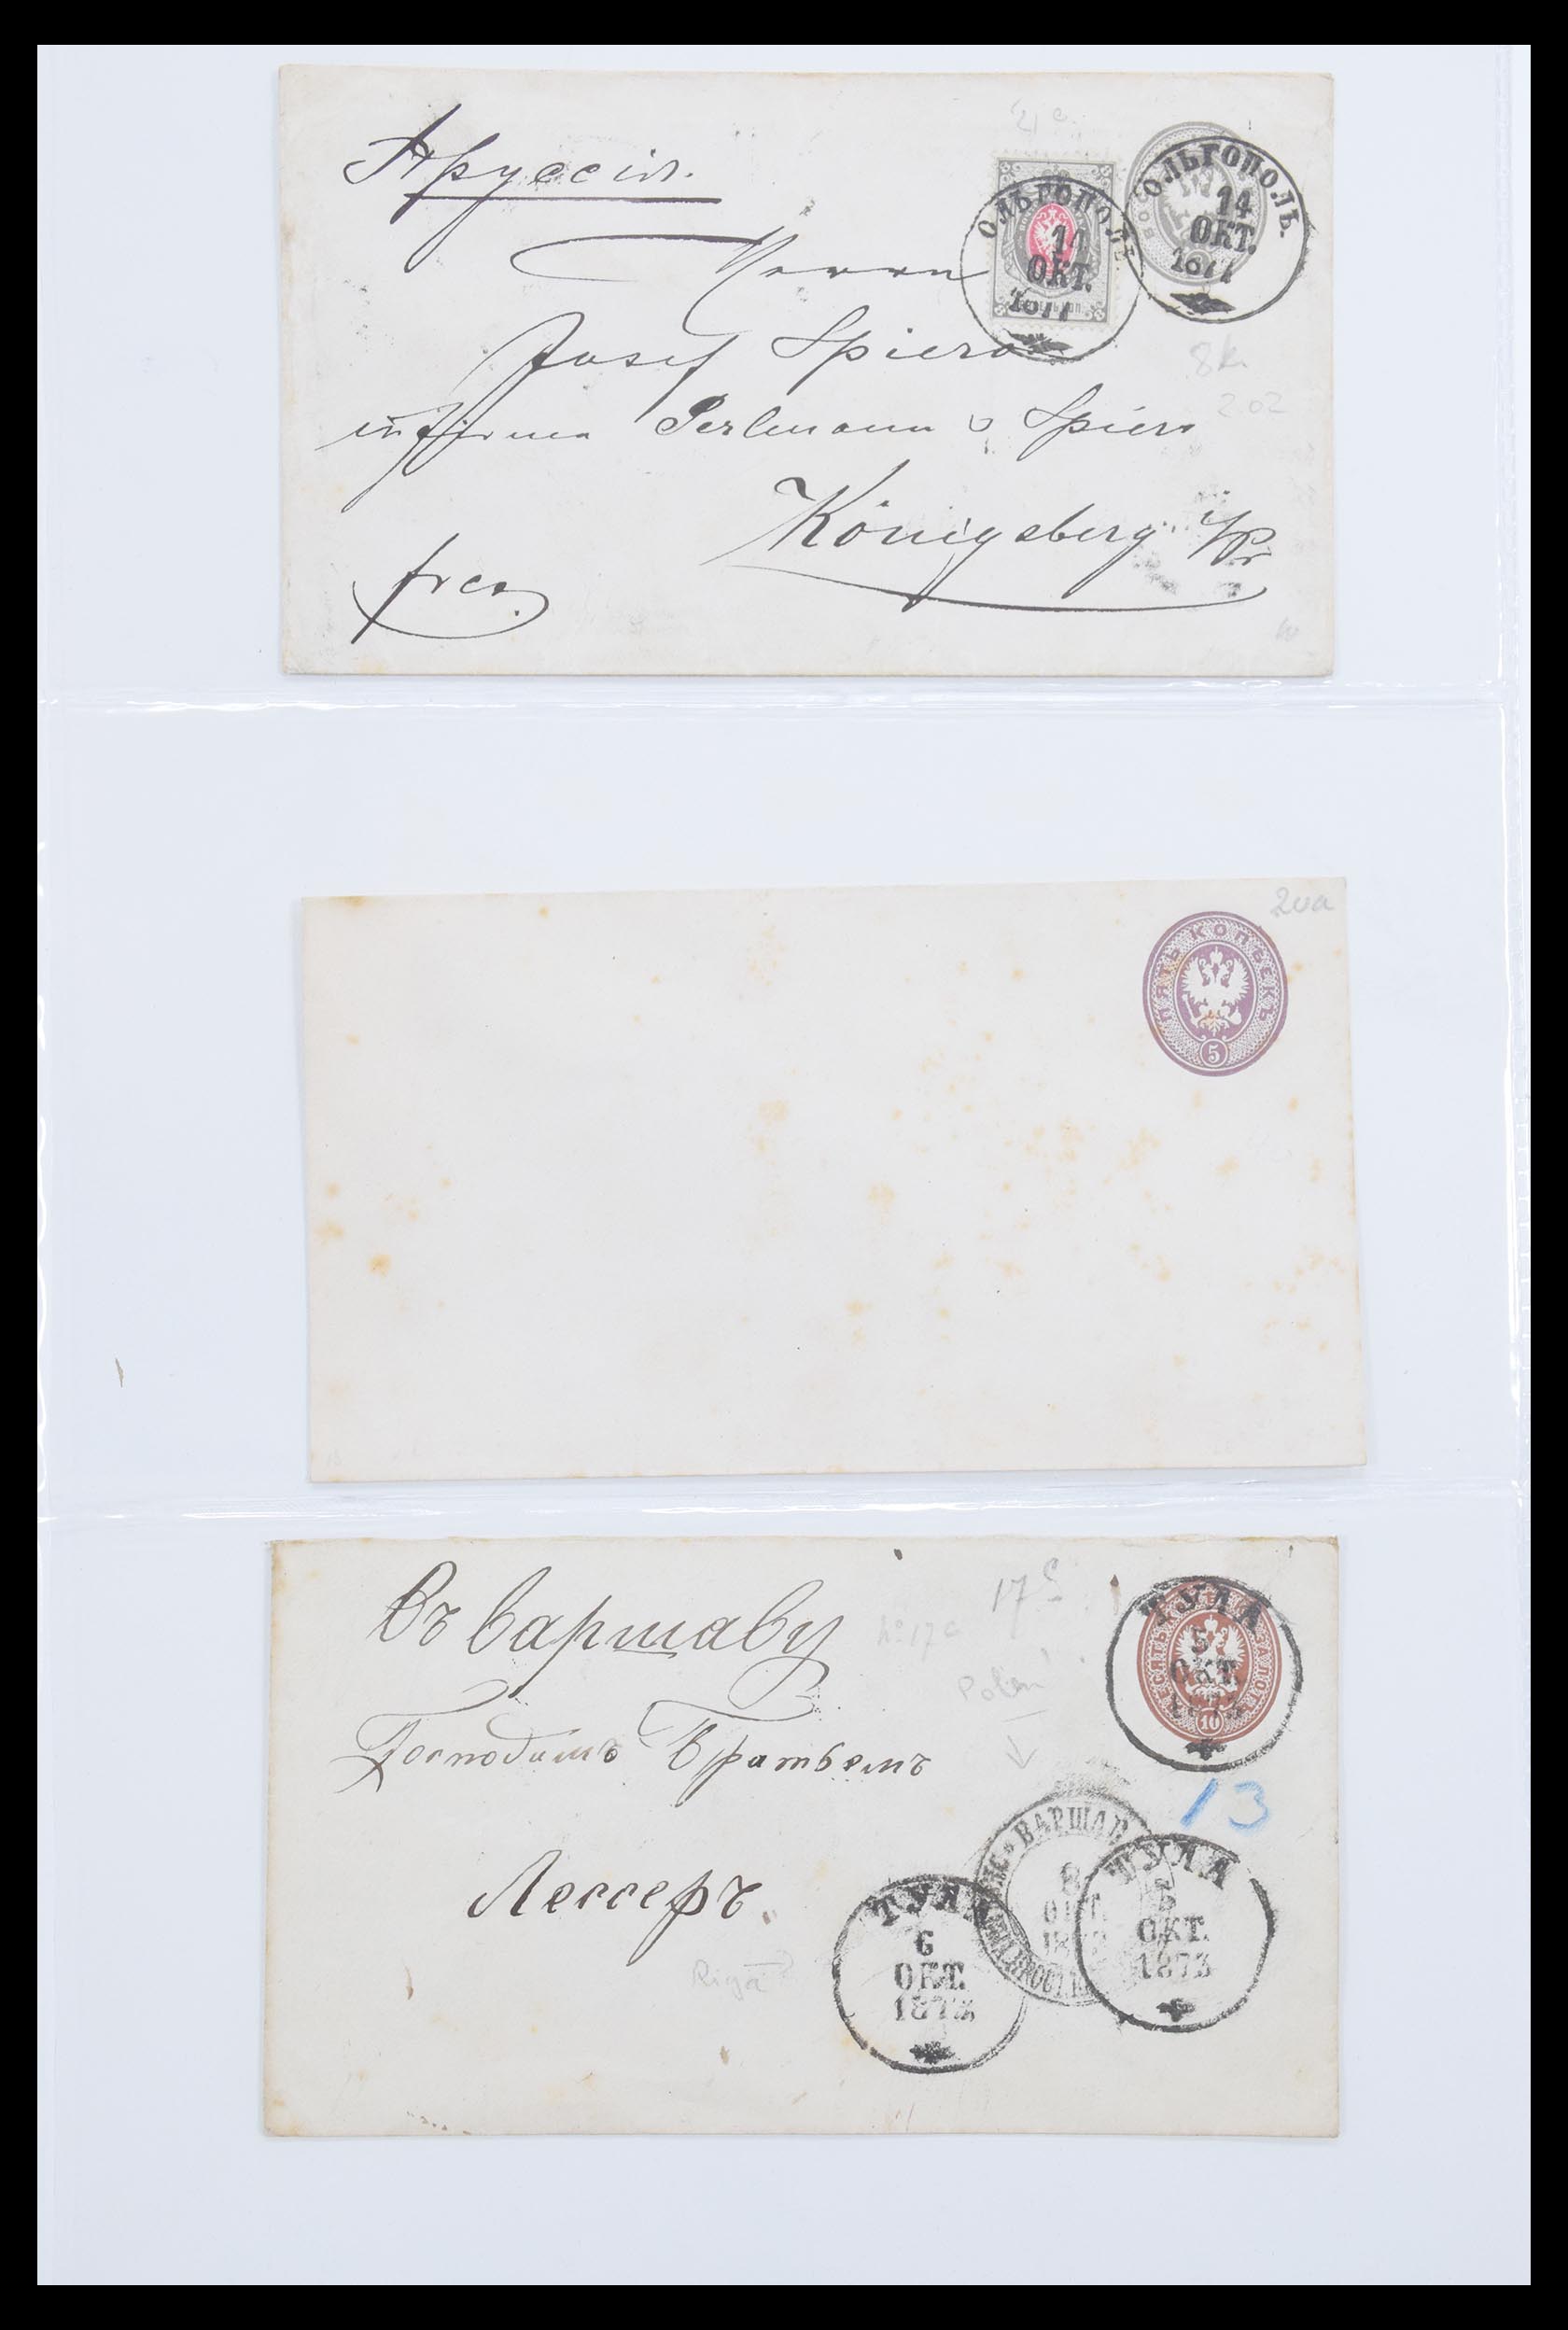 21 c
Пруссія.
ОЛЬГОПОЛЬ
14
ОКТ.
1877
ОЛЬГОПОЛЬ.
14
ОКТ.
1877
Herrn
Josef Spiero
8k
202
in firma Perlmann & Spiero
Königsberg i/Pr
frco.
20a
ПЯТЬ КОПѢЕКЪ
5
Въ Варшаву
17c
No 17c
Polen
ТУЛА
5
ОКТ.
1873
10
Господамъ Братьемъ
13
ВАРШАВ
8
ОКТ.
Лессеръ
ТУЛА
6
ОКТ.
1873
ТУЛА
5
ОКТ.
1873
Riga?